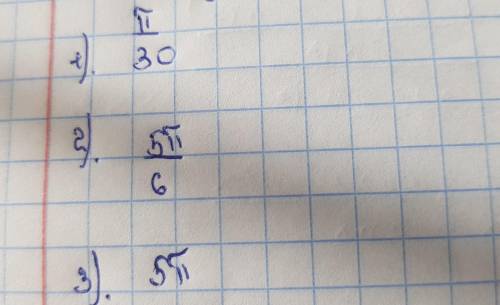 1). π/30
2). 5π/6
3). 5π